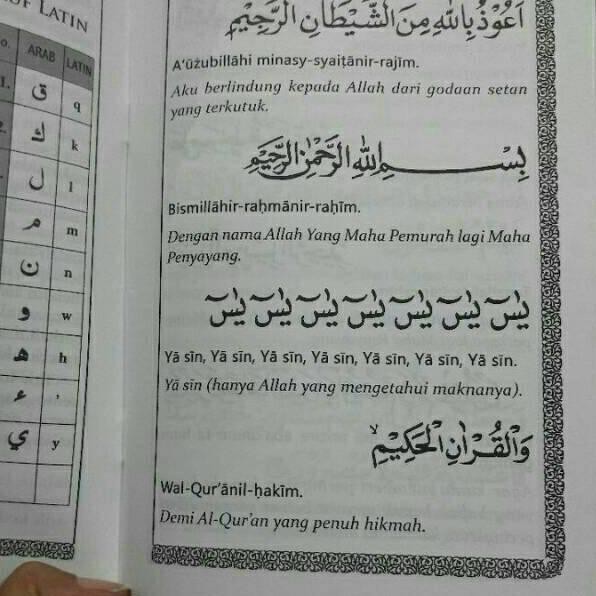 LATIN
ARAB LATIN
ق q
ك k
ل l
م m
ن n
و w
ه h
ء ’
ي y
اَعُوْذُ بِاللّٰهِ مِنَ الشَّيْطَانِ الرَّجِيْمِ
A‘ūżubillāhi minasy-syaiṭānir-rajīm.
Aku berlindung kepada Allah dari godaan setan
yang terkutuk.
بِسْـــــمِ اللّٰهِ الرَّحْمٰنِ الرَّحِيْمِ
Bismillāhir-raḥmānir-raḥīm.
Dengan nama Allah Yang Maha Pemurah lagi Maha
Penyayang.
يٰسۤ يٰسۤ يٰسۤ يٰسۤ يٰسۤ يٰسۤ يٰسۤ
Yā sīn, Yā sīn, Yā sīn, Yā sīn, Yā sīn, Yā sīn, Yā sīn.
Yā sīn (hanya Allah yang mengetahui maknanya).
وَالْقُرْاٰنِ الْحَكِيْمِۙ
Wal-Qur’ānil-ḥakīm.
Demi Al-Qur’an yang penuh hikmah.